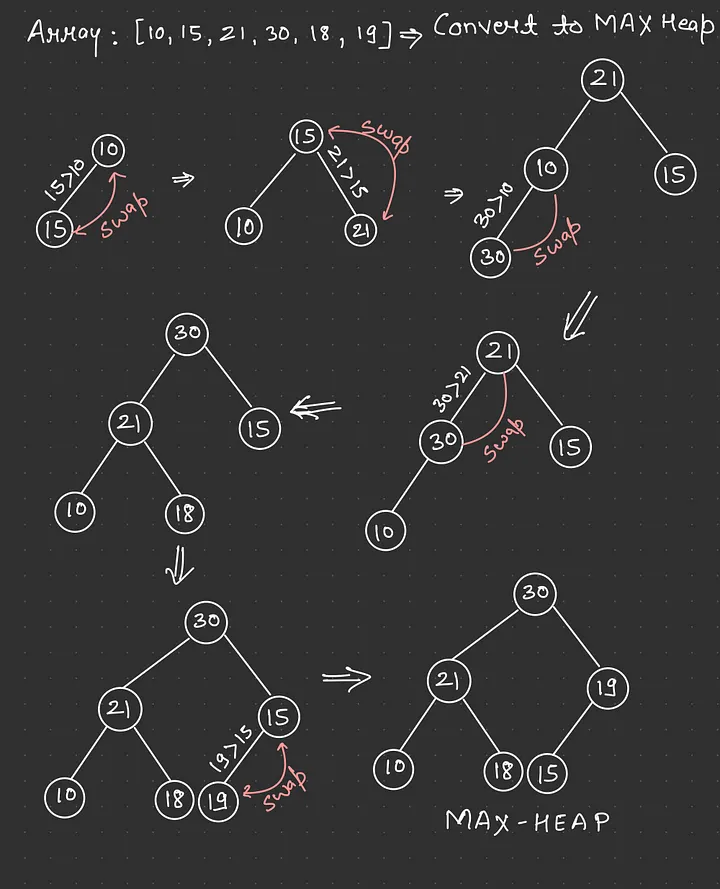 Array : [10, 15, 21, 30, 18, 19] ⇒ Convert to MAX Heap
10
15>10
15
swap
⇒
15
swap
21>15
10
21
⇒
21
10
15
30>10
30
swap
⇓
21
30>21
30
swap
15
10
⇐
30
21
15
10
18
⇓
30
21
15
19>15
10
18
19
swap
⇒
30
21
19
10
18
15
MAX-HEAP